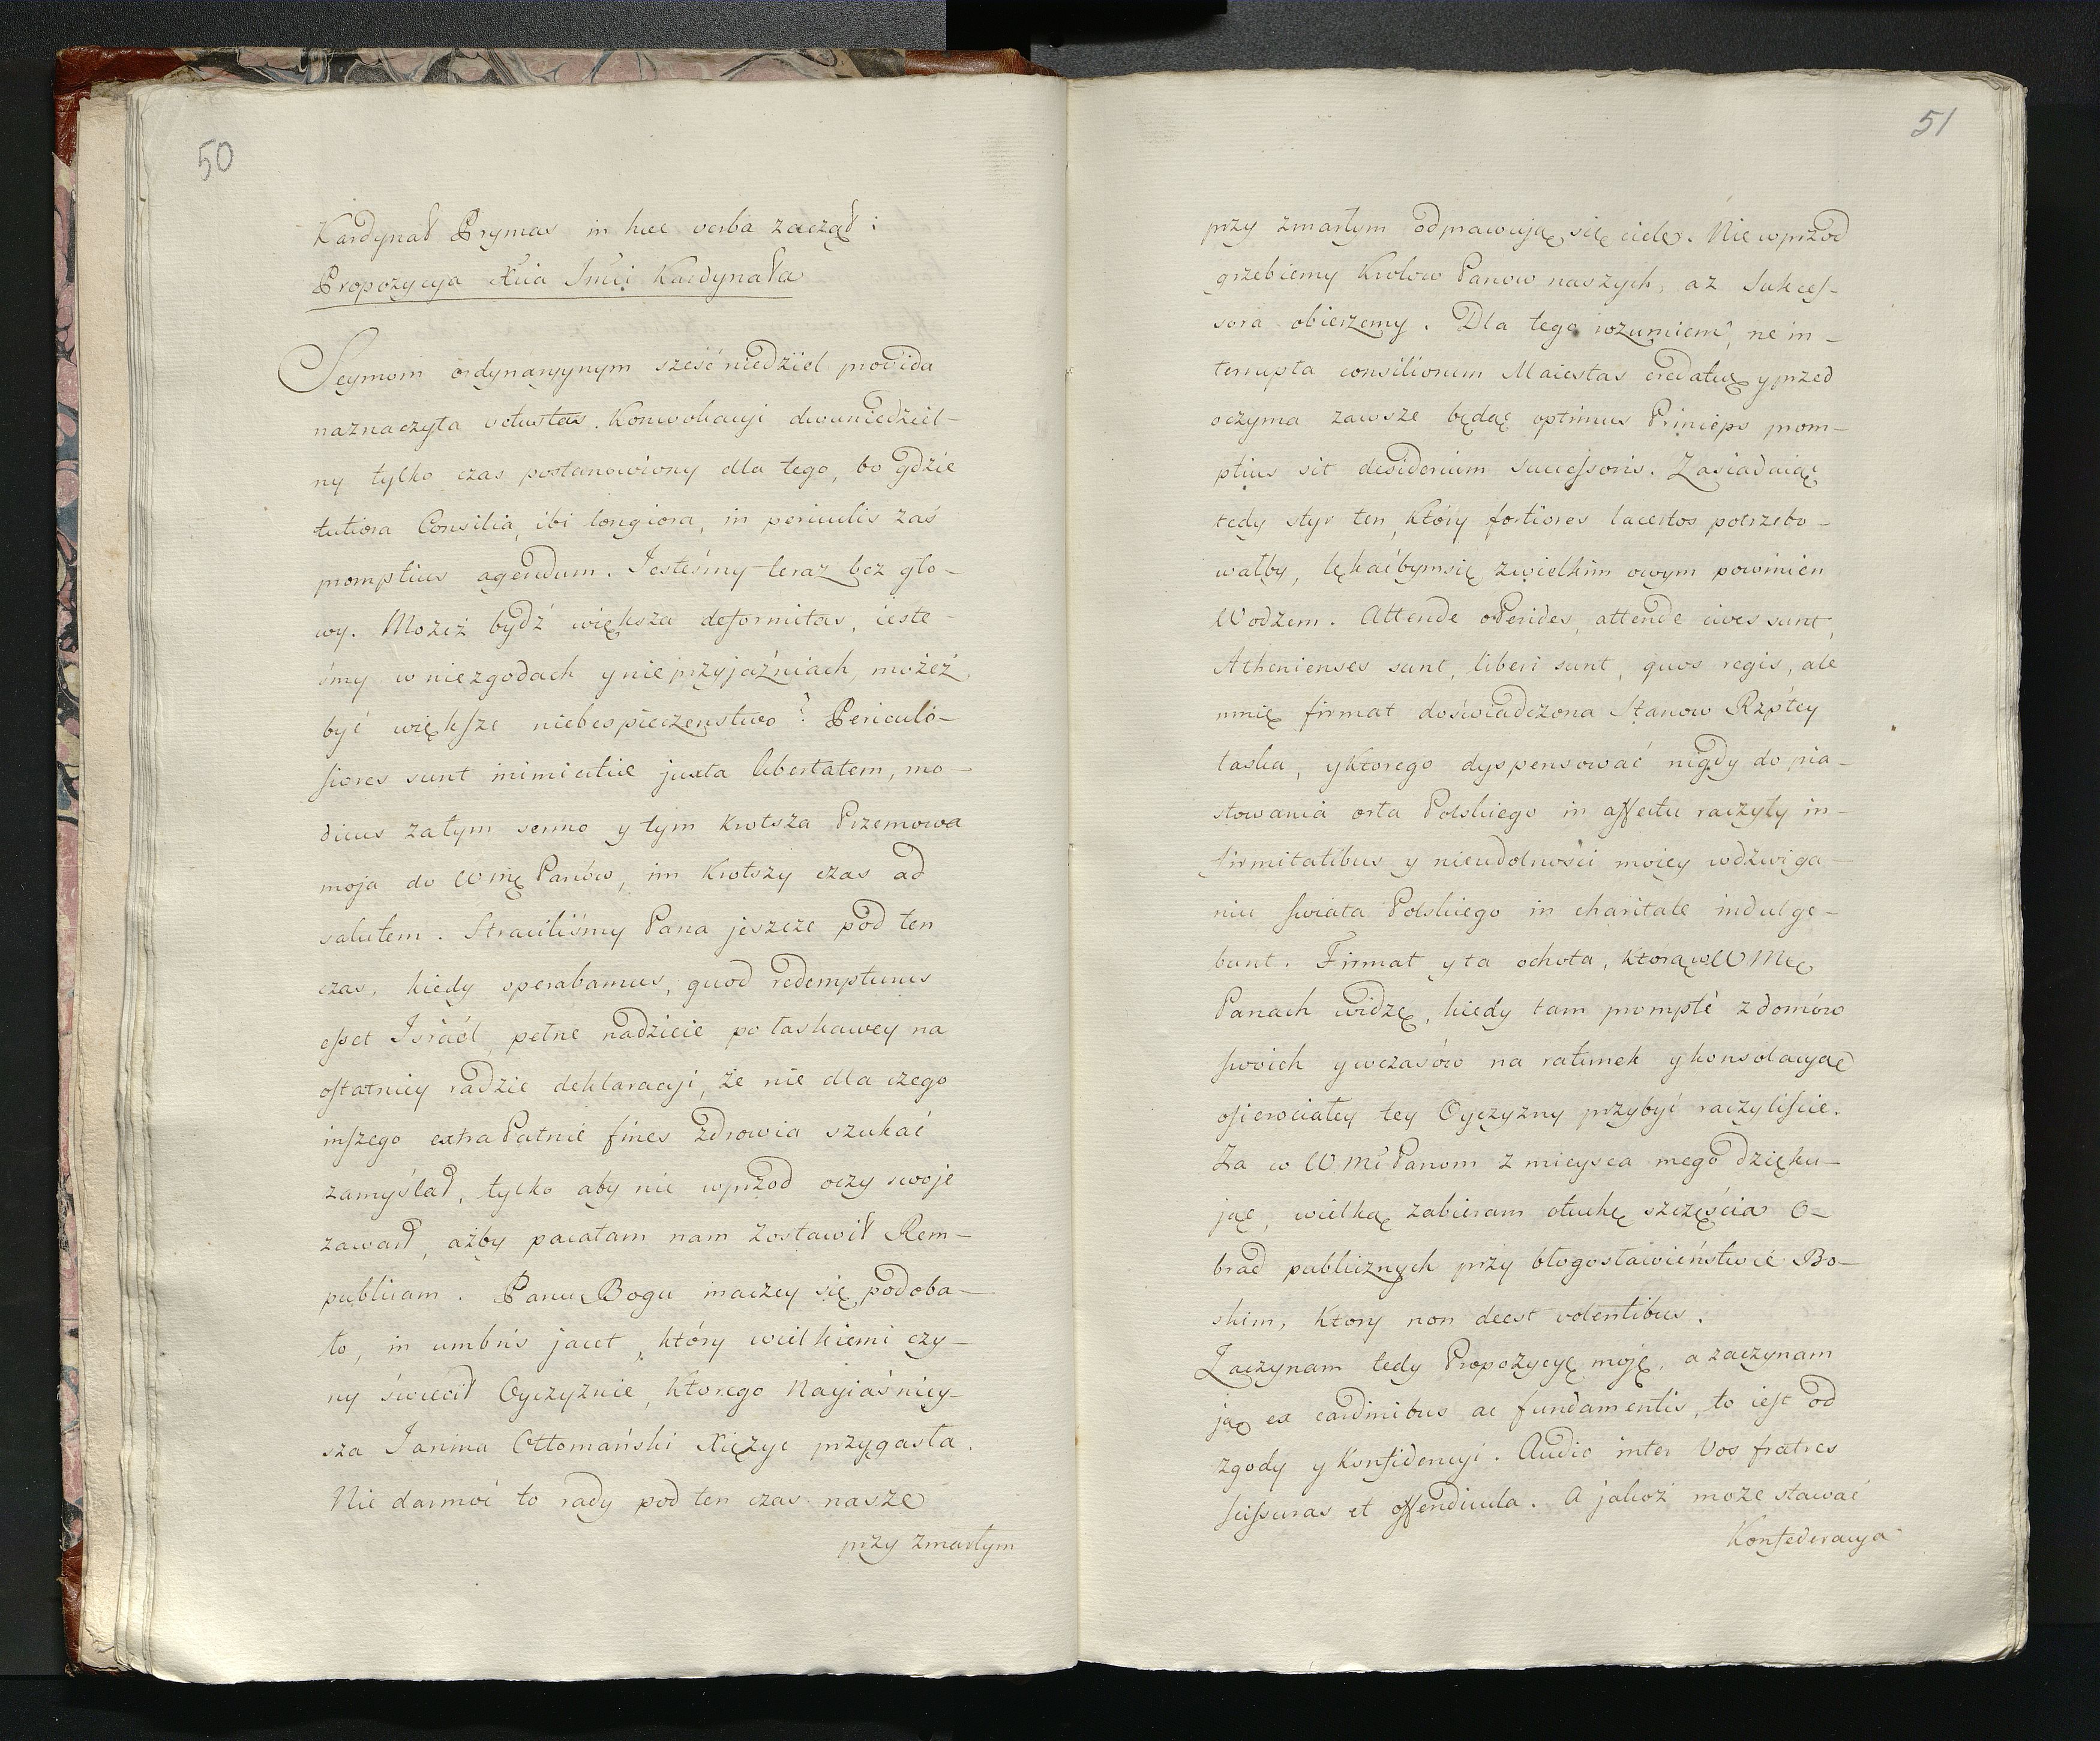 50
Kardynał Prymas in hæc verba zaczął:
Propozycya Xcia Jmci Kardynała
Seymom ordynaryjnym sześć niedziel provida
naznaczyła vetustas. Konwokacyi dwuniedziel-
ny tylko czas postanowiony dla tego, bo gdzie
tutiora Consilia, ibi longiora, in periculis zaś
promptius agendum. Jesteśmy teraz bez gło-
wy. Możeż bydź większa deformitas, ieste-
śmy w niezgodach y nieprzyjaźniach, możeż
być większe niebespieczenstwo? Periculo-
siores sunt inimicitiæ juxta libertatem, mo-
dicus zatym sermo y tym krotsza Przemowa
moja do WMę Panów, im krotszy czas ad
salutem. Straciliśmy Pana jeszcze pod ten
czas, kiedy sperabamus, quod redempturus
esset Israël, pełne nadzieie po łaskawey na
ostatniey radzie deklaracyi, że nie dla czego
inszego extra Patriæ fines zdrowia szukać
zamyślał, tylko aby nie wprzod oczy swoje
zawarł, ażby pacatam nam zostawił Rem-
publicam. Panu Bogu inaczey się podoba-
ło, in umbris jacet, który wielkiemi czy-
ny świecił Oyczyznie, ktorego Nayiaśniey-
sza Janina Ottomański Xiężyc przygasła.
Nie darmoć to rady pod ten czas nasze
przy zmarłym
51
przy zmarłym odprawują się ciele. Nie wprzod
grzebiemy Krolow Panow naszych, az Sukces-
sora obierzemy. Dla tego rozumiem, ne in-
terrupta consiliorum Maiestas credatur y przed
oczyma zawsze będąc optimus Princeps prom-
ptius sit desiderium successoris. Zasiadaiąc
tedy styr ten, który fortiores lacertos potrzebo-
wałby, lękaćbym się z wielkim owym powinien
Wodzem. Attende o Perides, attende cives sunt,
Athenienses sunt, liberi sunt, quos regis, ale
mnię firmat doświadczona Stanow Rzptey
łaska, y ktorego dyspensować nigdy do pia-
stowania orła Polskiego in affectu raczyły in-
firmitatibus y nieudolności moiey w dźwiga-
niu swiata Polskiego in charitate indulge-
bunt. Firmat y ta ochota, którą w WMę
Panach widzę, kiedy tam promptè z domów
swoich y wczasów na ratunek y konsolacyą
osierociałey tey Oyczyzny przybyć raczyliscie.
Za co WMć Panom z mieysca mego dzięku-
jąc, wielką zabieram otuchę szczęścia o-
brad publicznych przy błogosławieństwie Bo-
skim, ktory non deest volentibus.
Zaczynam tedy Propozycyę moję, a zaczynam
ją ex cardinibus ac fundamentis, to iest od
zgody y Konfidencyi. Audio inter Vos fratres
scissuras et offendicula. A jakoż może stawać
Konfederacya